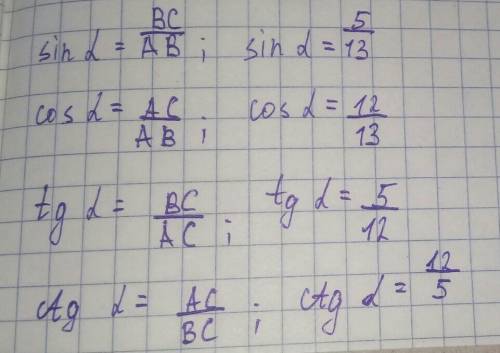 sin α = BC/AB ; sin α = 5/13
cos α = AC/AB ; cos α = 12/13
tg α = BC/AC ; tg α = 5/12
ctg α = AC/BC ; ctg α = 12/5